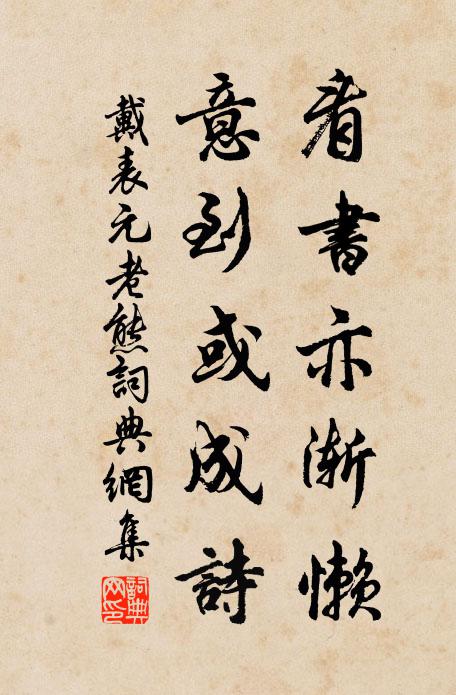 看書亦漸懶
意到或成詩
戴表元老態詞典網集
詞典網印